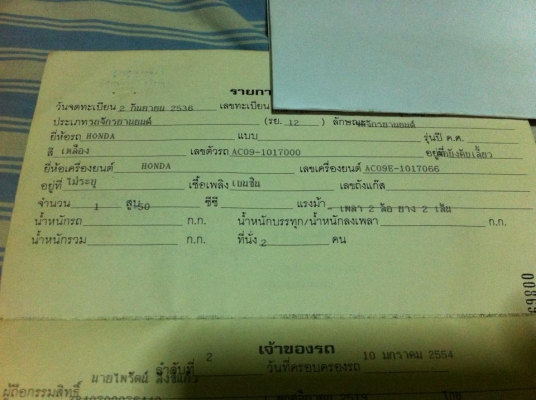 รายกา
วันจดทะเบียน 2 กันยายน 2536 เลขทะเบียน
ประเภทรถจักรยานยนต์ (รย. 12) ลักษณะรถจักรยานยนต์
ยี่ห้อรถ HONDA แบบ รุ่นปี ค.ศ.
สี เหลือง เลขตัวรถ AC09-1017000 อยู่ที่
ยี่ห้อเครื่องยนต์ HONDA เลขเครื่องยนต์ AC09E-1017066
อยู่ที่ ไม่ระบุ เชื้อเพลิง เบนซิน เลขถังแก๊ส
จำนวน 1 สูบ 50 ซีซี แรงม้า - เพลา 2 ล้อ ยาง 2 เส้น
น้ำหนักรถ ก.ก. น้ำหนักบรรทุก/น้ำหนักลงเพลา ก.ก.
น้ำหนักรวม ก.ก. ที่นั่ง 2 คน
เจ้าของรถ
ลำดับที่ 2 วันที่ครอบครองรถ 10 มกราคม 2554
ผู้ถือกรรมสิทธิ์ นายไพรัตน์